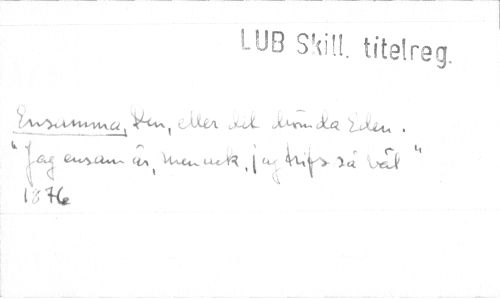 LUB Skill. titelreg.
Ensamma, Den, eller det drömda Eden.
"Jag ensam är, men ack, jag trifs så väl"
1876